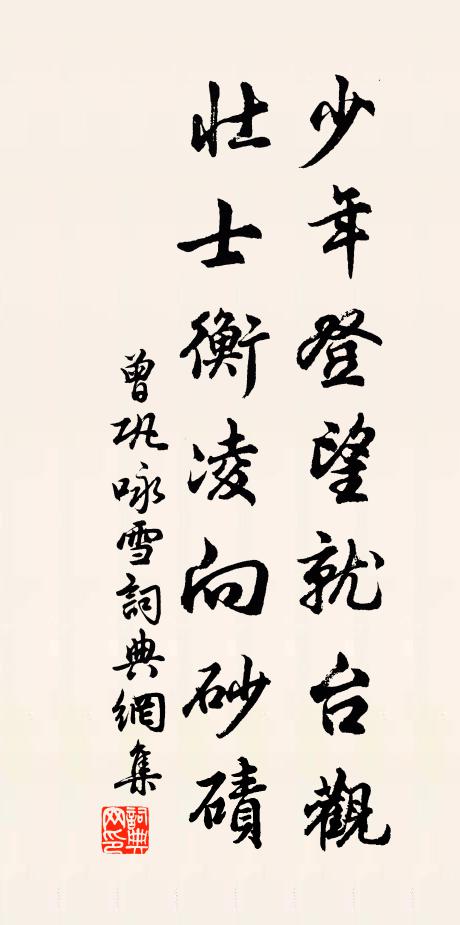 少年登望就台觀
壯士衡凌向砂磧
曾巩咏雪詞典網集
詞典